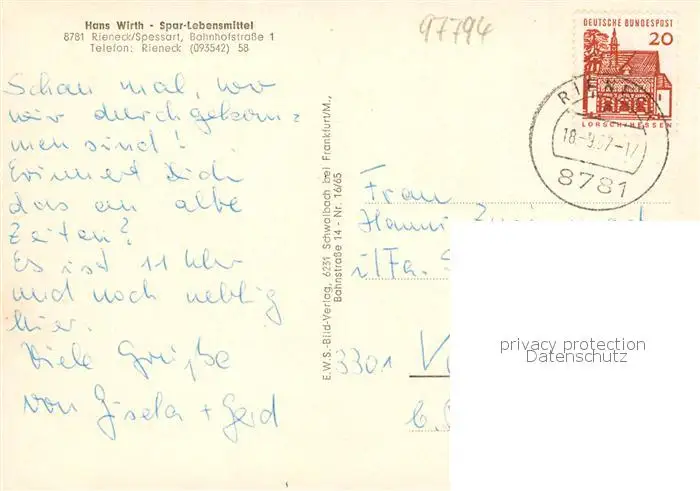 Hans Wirth - Spar-Lebensmittel
8781 Rieneck/Spessart, Bahnhofstraße 1
Telefon: Rieneck (093542) 58
97794
DEUTSCHE BUNDESPOST
20
LORSCH/HESSEN
18-9.67-17
8781
Schau mal, wo
wir durchgekom=
men sind!
Erinnert Dich
das an alte
Zeiten?
Es ist 11 Uhr
und noch neblig
hier.
Viele Grüße
von Gisela + Gerd
E.W.S.-Bild-Verlag, 6231 Schwalbach bei Frankfurt/M.,
Bahnstraße 14 - Nr. 16/65
Frau
Hanni
i/Fa.
3301
privacy protection
Datenschutz